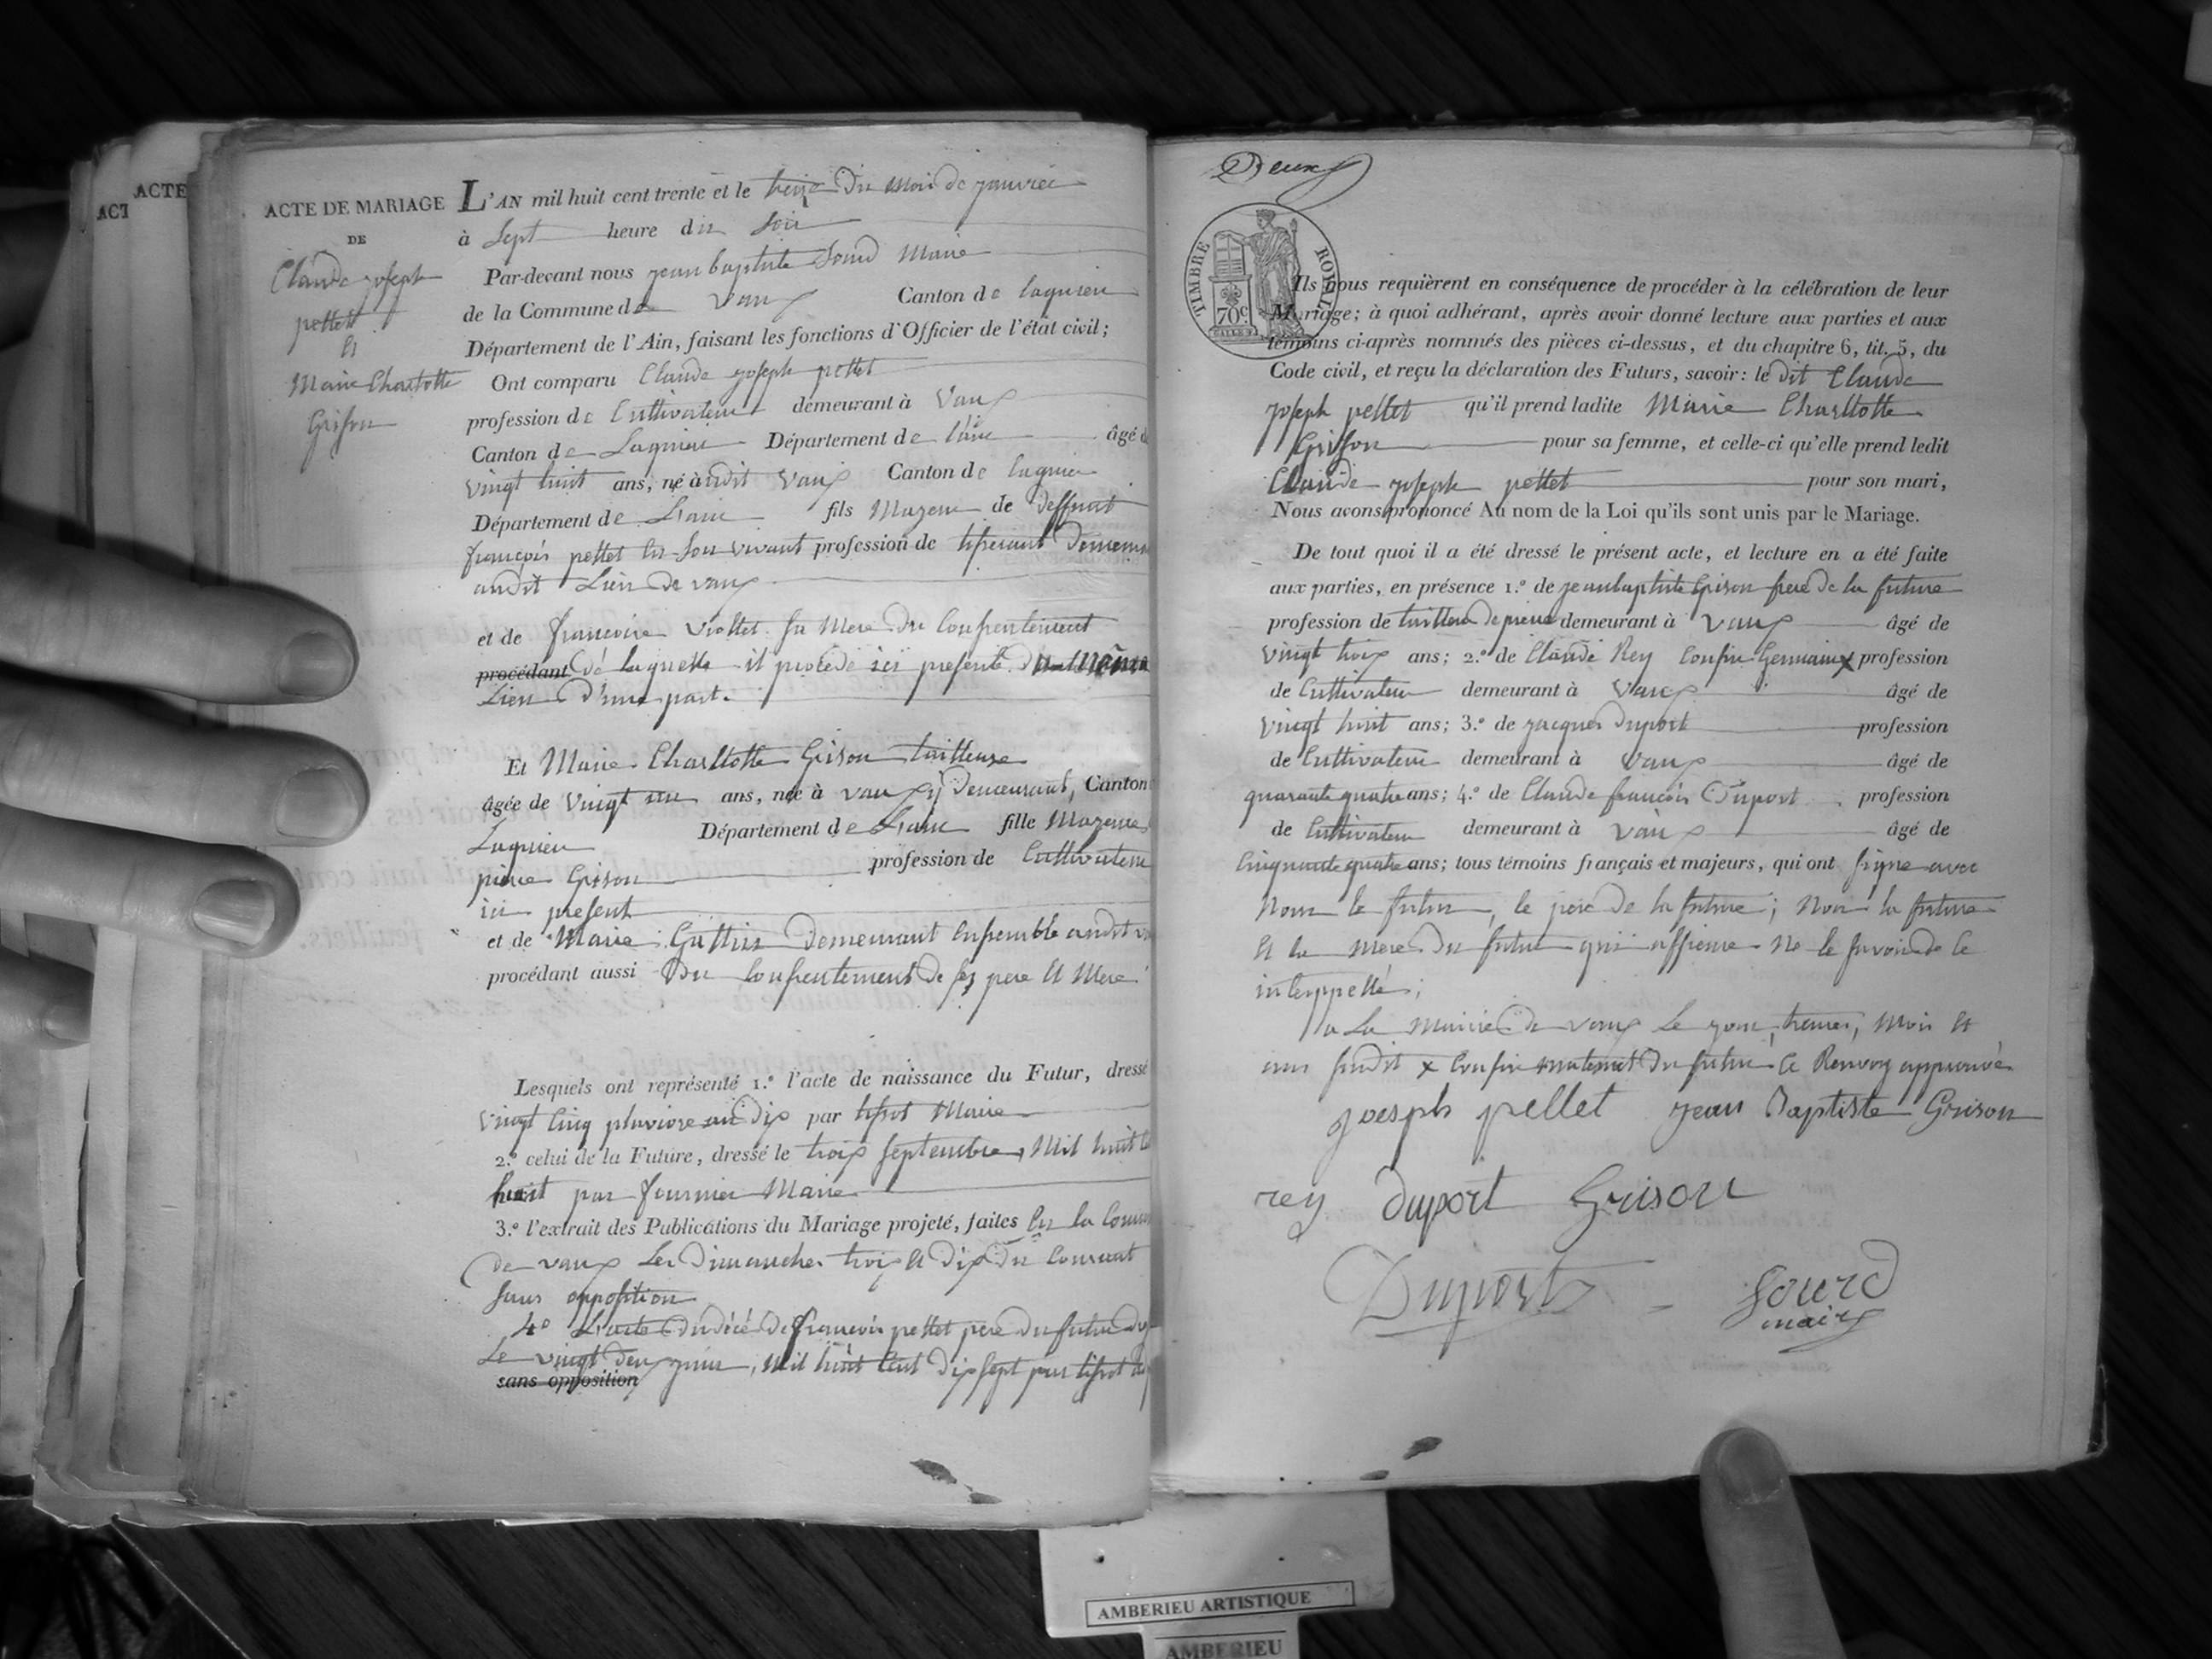 ACTE
ACT
ACTE DE MARIAGE
DE
Claude joseph
pellet
Et
Marie Charlotte
Grison
L'AN mil huit cent trente et le treize du mois de janvier
à Sept heure du Soir
Par-devant nous jean baptiste Sourd Maire
de la Commune de Vaux Canton de lagnieu
Département de l'Ain, faisant les fonctions d'Officier de l'état civil;
Ont comparu Claude joseph pellet
profession de Cultivateur demeurant à Vaux
Canton de Lagnieu Département de l'ain âgé d
vingt huit ans, né à udit Vaux Canton de lagnieu
Département de L'ain fils Mageur de deffunt
françois pellet En Son vivant profession de tisserant
audit Lieu de vaux
et de francoise Viollet Sa Mere du Consentement
procédant de laquelle il procède ici presente
Lieu D'une part.
Et Marie Charllotte Grison tailleuse
âgée de Vingt un ans, née à vaux y Demeurant, Canton
Lagnieu Département de L'ain fille Mageure
pierre Grison profession de Cultivateur
ici present
et de Marie Guttin demeurant Ensemble audit
procédant aussi Du Consentement de ses pere Et Mere
Lesquels ont représenté 1.º l'acte de naissance du Futur, dressé
vingt Cinq pluviore an dix par tissot Maire
2.º celui de la Future, dressé le trois septembre, Mil huit
huit par fournier Maire
3.º l'extrait des Publications du Mariage projeté, faites En la
de vaux Les Dimanches trois Et dix du Courant
Sans opposition
4º L'acte du décé de francois pellet pere du futur
Le vingt deux juin, Mil huit Cent dix sept par tissot
sans opposition
Deux
TIMBRE ROYAL
70c
Ils nous requièrent en conséquence de procéder à la célébration de leur
Mariage; à quoi adhérant, après avoir donné lecture aux parties et aux
témoins ci-après nommés des pièces ci-dessus, et du chapitre 6, tit. 5, du
Code civil, et reçu la déclaration des Futurs, savoir: le dit Claude
joseph pellet qu'il prend ladite Marie Charllotte
Grisson pour sa femme, et celle-ci qu'elle prend ledit
Claude joseph pellet pour son mari,
Nous avons prononcé Au nom de la Loi qu'ils sont unis par le Mariage.
De tout quoi il a été dressé le présent acte, et lecture en a été faite
aux parties, en présence 1.º de jean baptiste Grison frere de la future
profession de tailleur de pierre demeurant à Vaux âgé de
Vingt trois ans; 2.º de Claude Rey Cousin Germain x profession
de Cultivateur demeurant à Vaux âgé de
vingt huit ans; 3.º de jacques Duport profession
de Cultivateur demeurant à Vaux âgé de
quarante quatre ans; 4.º de Claude francois Duport profession
de Cultivateur demeurant à vaux âgé de
Cinquante quatre ans; tous témoins français et majeurs, qui ont Signe avec
Nous le futur, le pere de la future; Non la future
Et la Mere Du futur qui Ne le Savoir de ce
interppellé;
a La Mairie de vaux Le jour, heures, Mois Et
ans Susdit x Cousin maternel du futur Ce Renvoy approuvé
joesph pellet jean Baptiste Grison
rey duport Grison
Duport Sourd
maire
AMBERIEU ARTISTIQUE
AMBERIEU